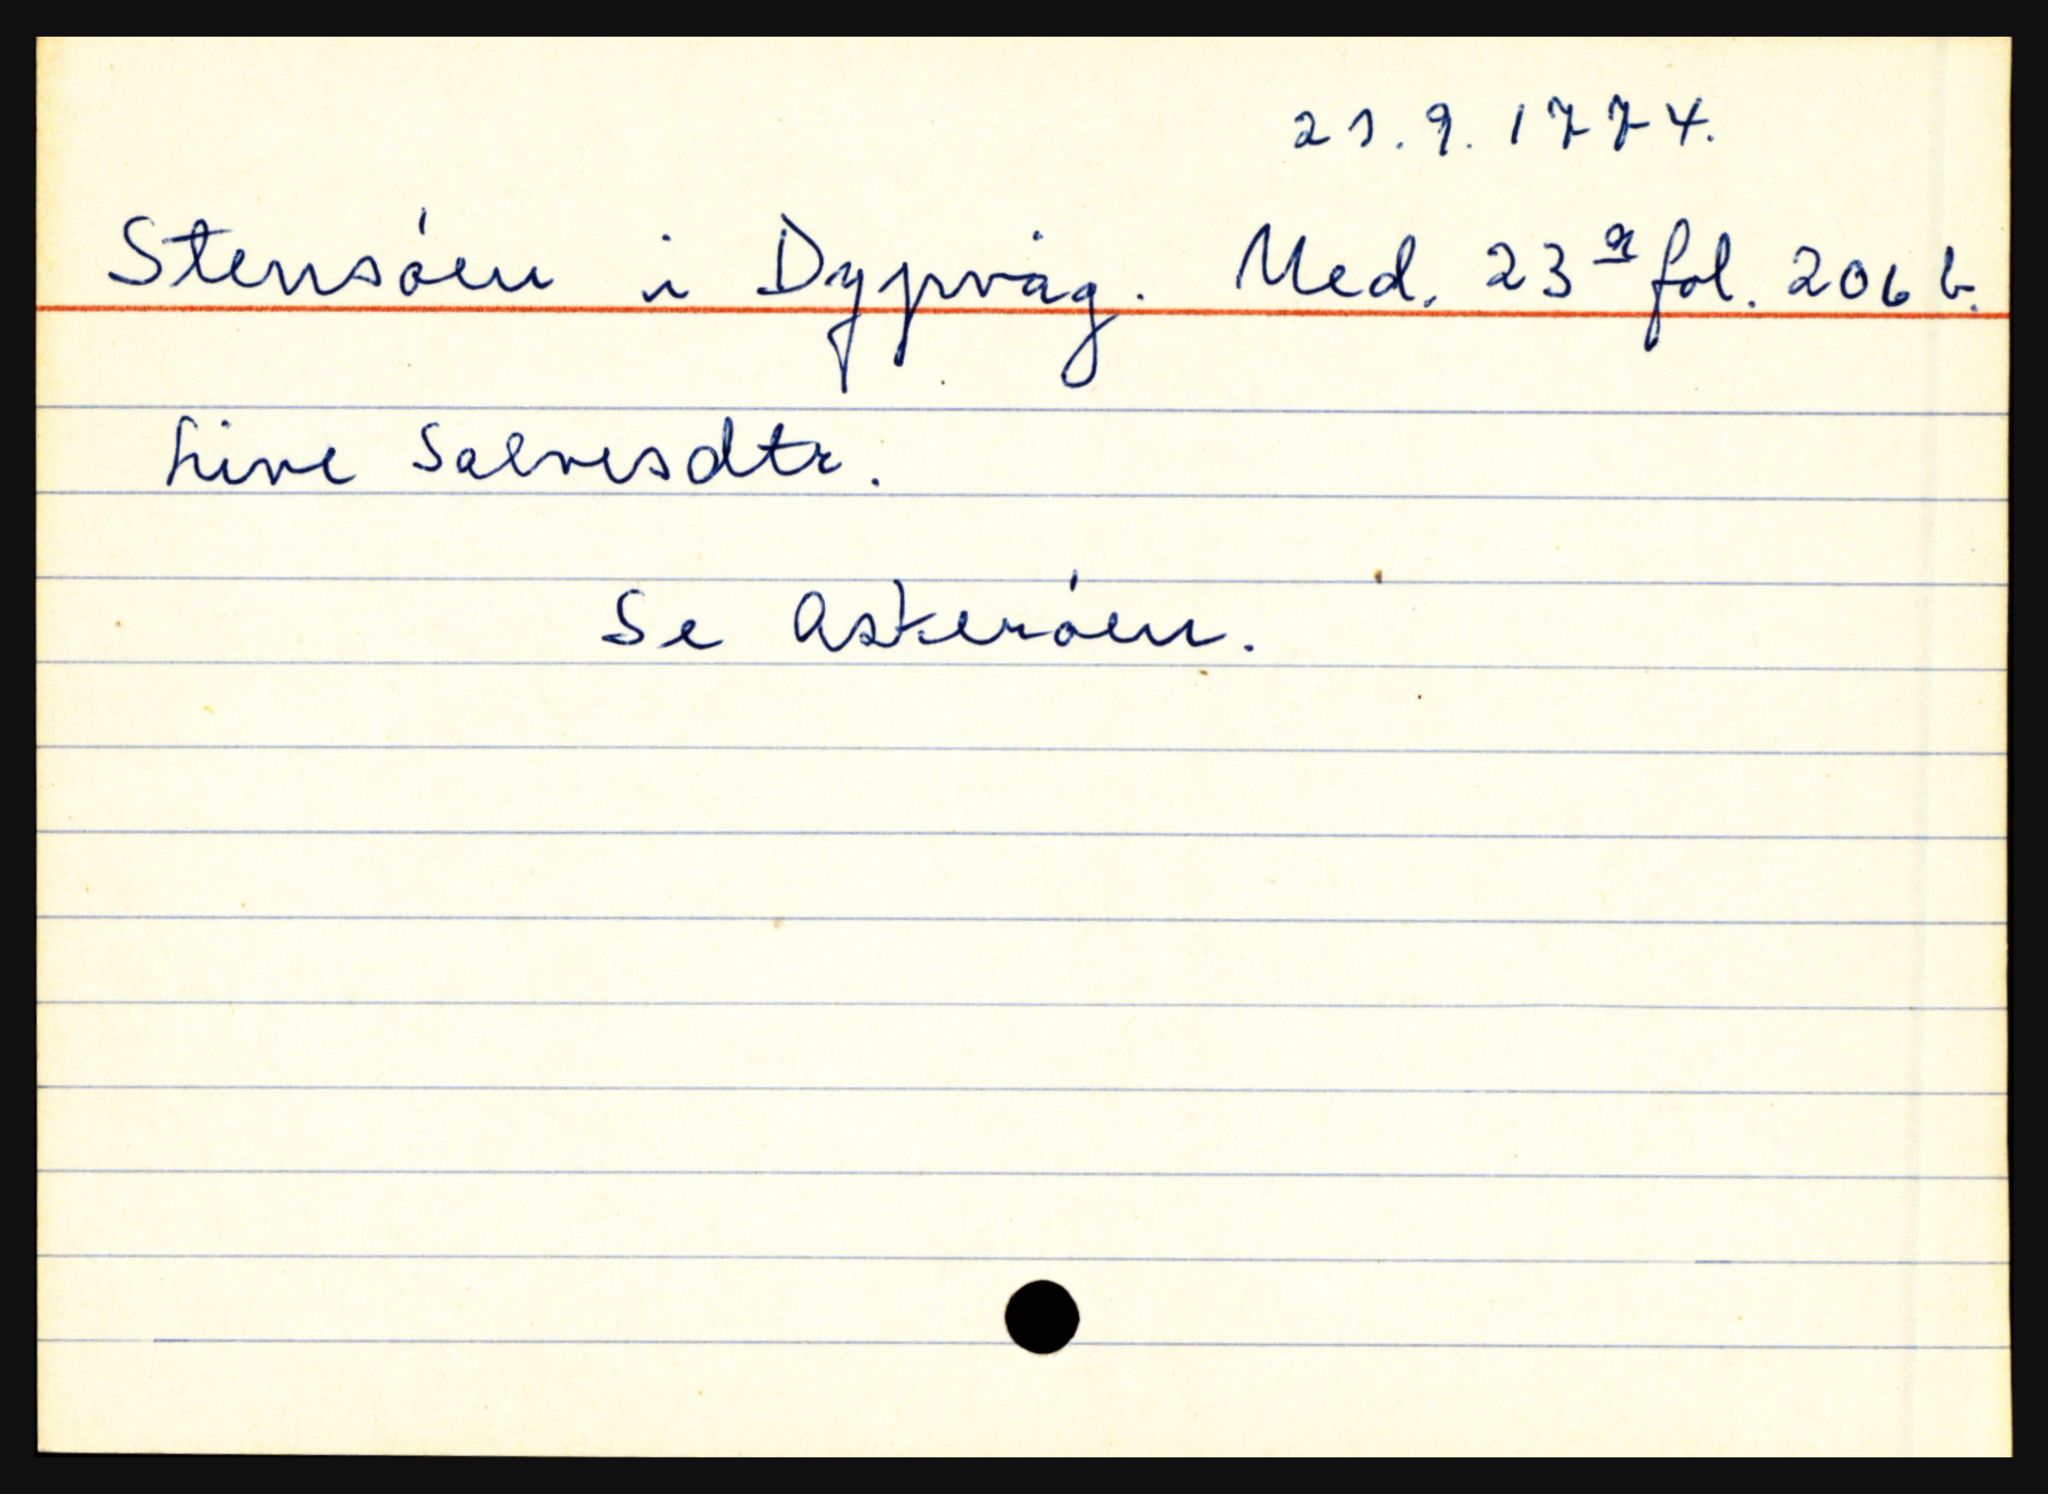 21.9.1774.
Stensóen i Dypvåg. Med. 23ª fol. 206 b.
Live Salvesdtr.
Se Askeróen.